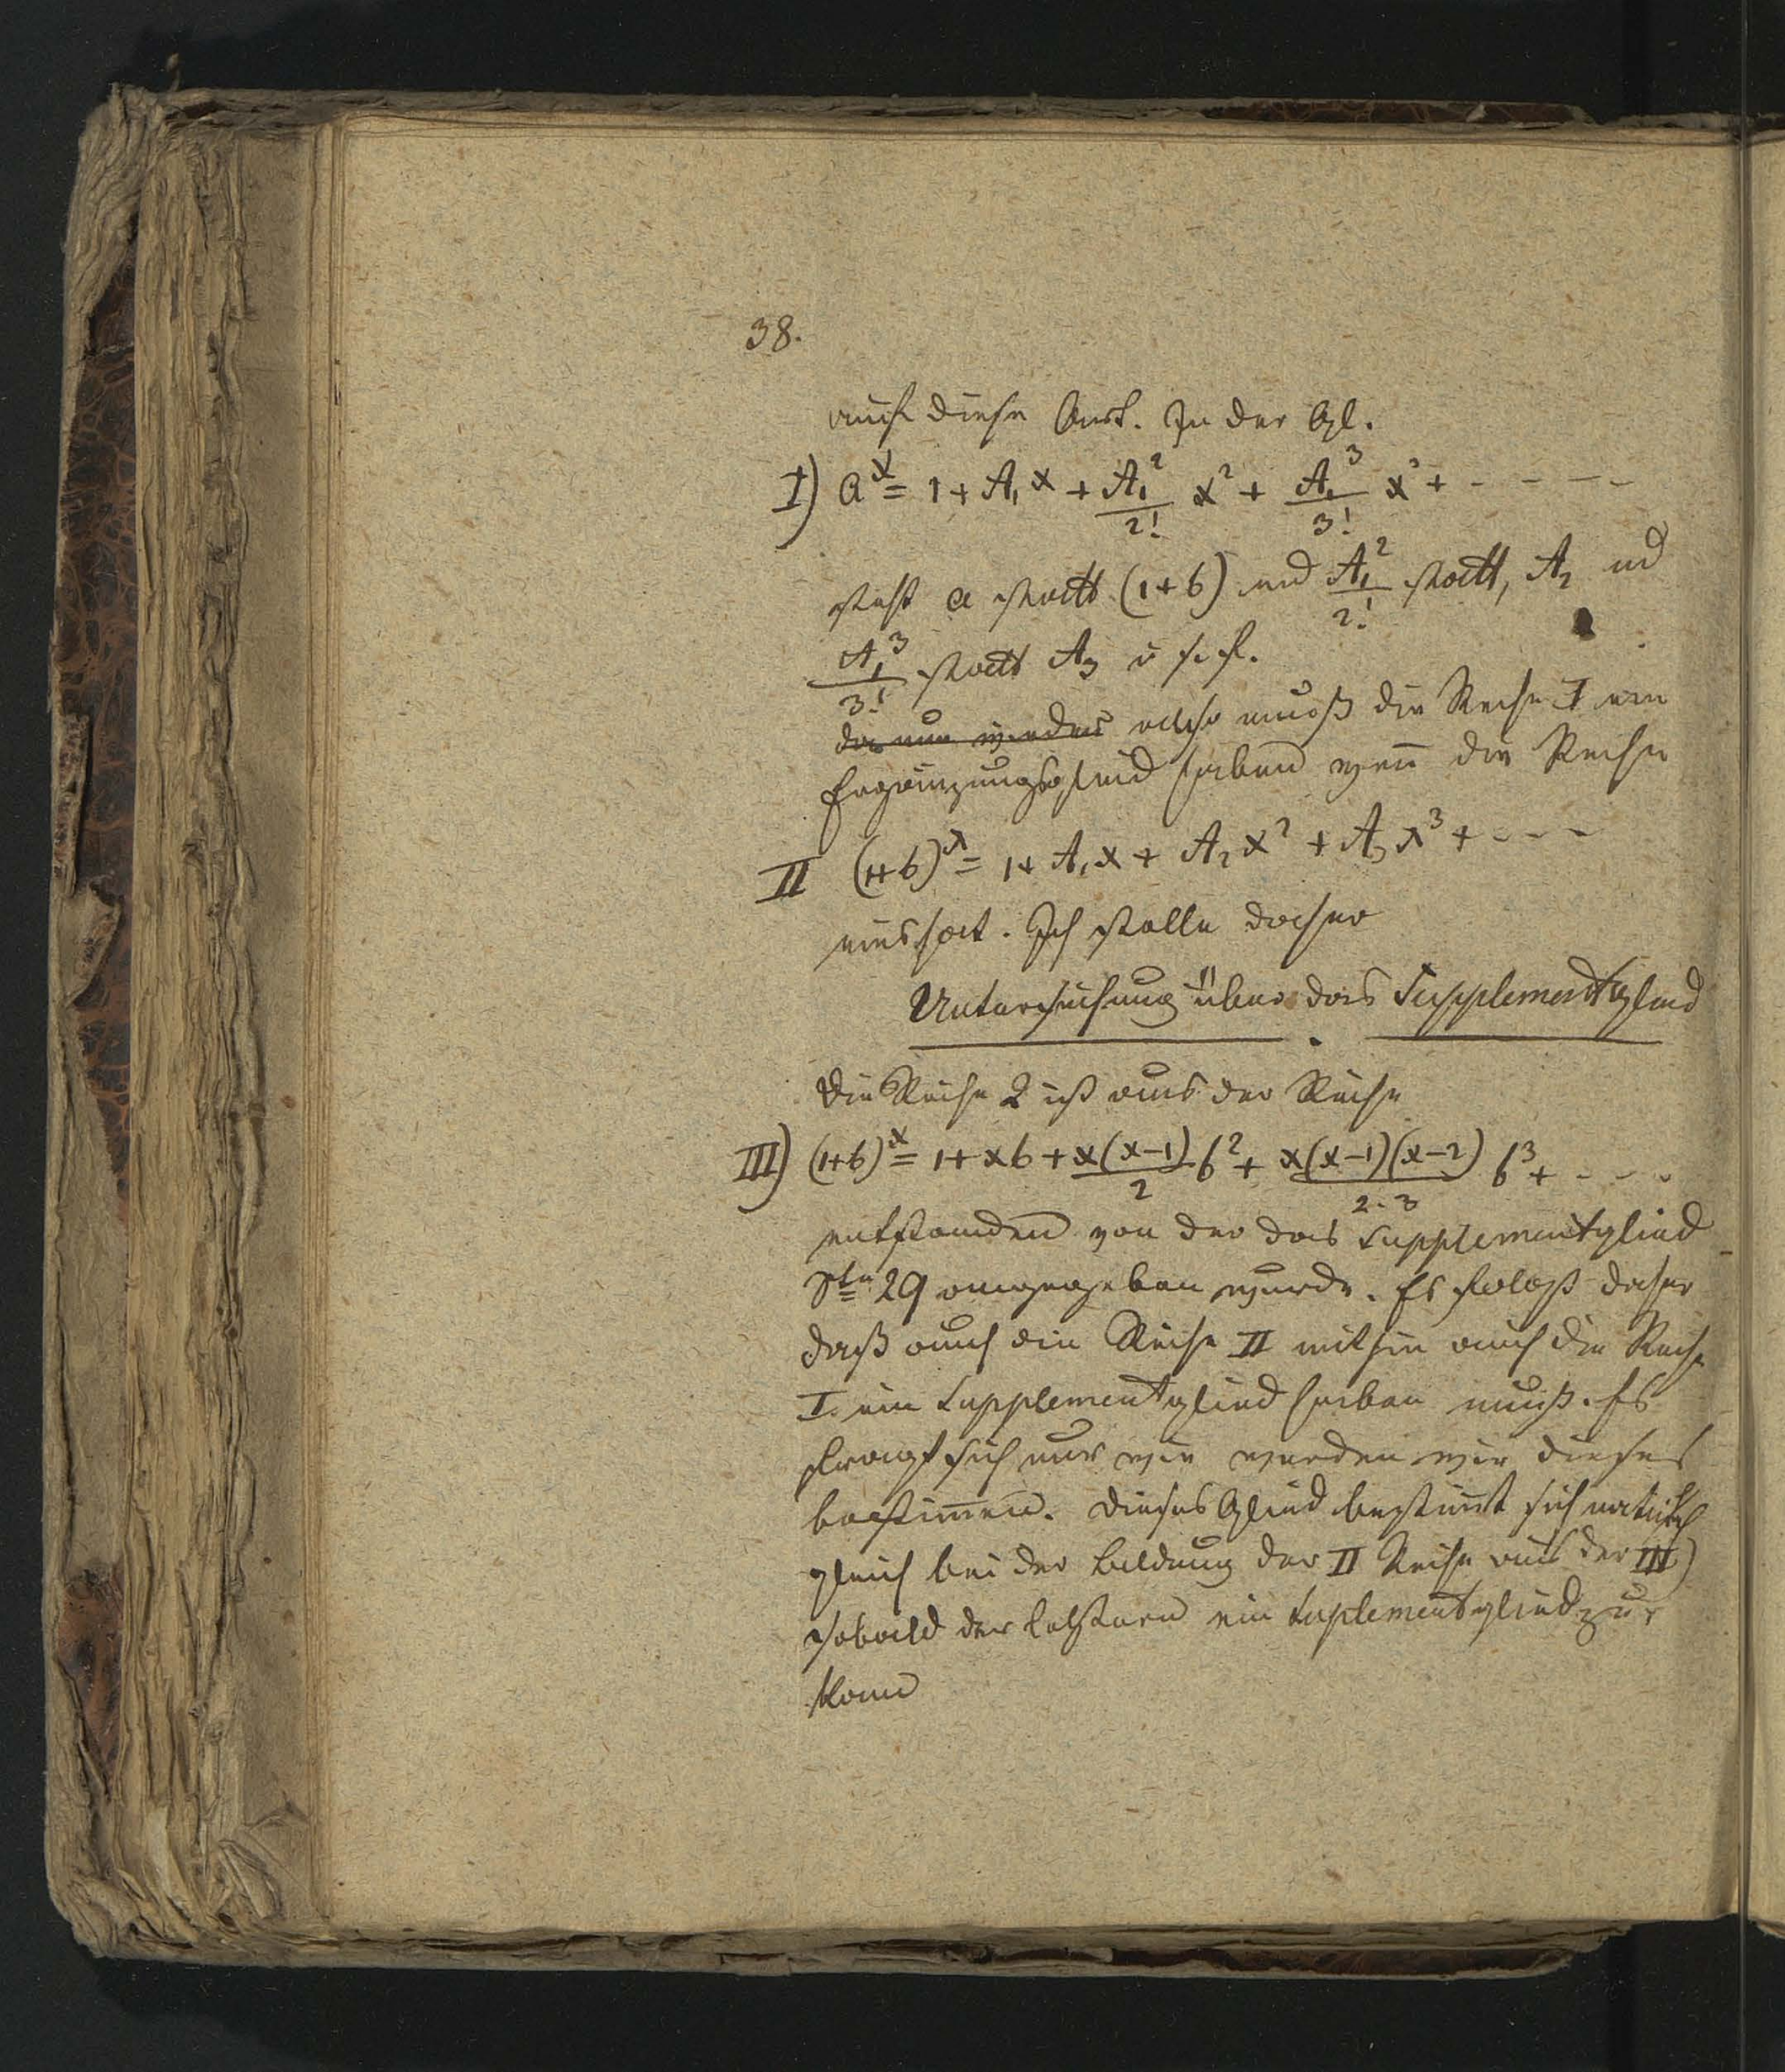 38.
auf diese Art. In der Gl.
I) a^x = 1 + A₁x + A₁²/2! x² + A₁³/3! x³ + - - - -
steht a statt (1+b) und A₁²/2! statt, A₂ ud
A₁³/3! statt A₃ u s. f.
da nun also muß die Reihe I ein
Ergänzungsglied haben wen̄ die Reihe
II (1+b)^x = 1 + A₁x + A₂x² + A₃x³ + - - -
eins hat. Ich stelle daher
Untersuchung über das Supplementglied
Die Reihe 2 ist aus der Reihe
III) (1+b)^x = 1 + xb + x(x-1)/2 b² + x(x-1)(x-2)/2.3 b³ + - - -
entstanden von der das Supplementglied
Ste 29 angegeben wurde. Es folgt daher
daß auch die Reihe II mithin auch die Reihe
I. ein Supplementglied haben muß. Es
fragt sich nur wie werden wir dieses
bestim̄en. Dieses Glied bestim̄t sich natürlich
gleich bei der Bildung der II Reihe aus der III)
sobald der letztern ein Suplementglied zu,
kom̄